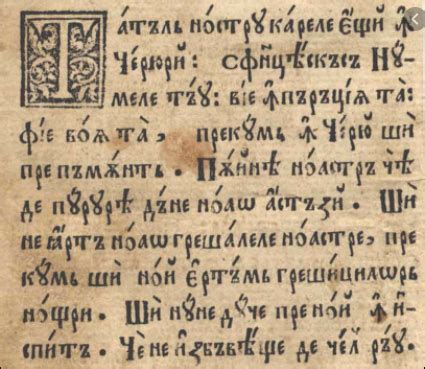 Татъль ностру кареле єщй ꙟ
Черюрй: Сфинцѣскъсъ Ну-
меле тъу: віе ꙟпъръціѧ та:
фіе воѧ та, прекумь ꙟ Черю ши
пре пъмѫнть. Пѫйнѣ ноастръ чѣ
де пурурѣ дъне ноаѡ астъзй. Ши
не іартъ ноаѡ грешалеле ноастре, пре
кумь ши ной єртъмь грешицилѡрь
нощри. Ши нуне дуче пре ной ꙟ й-
спитъ. Че не избъвѣще де чел ръу.